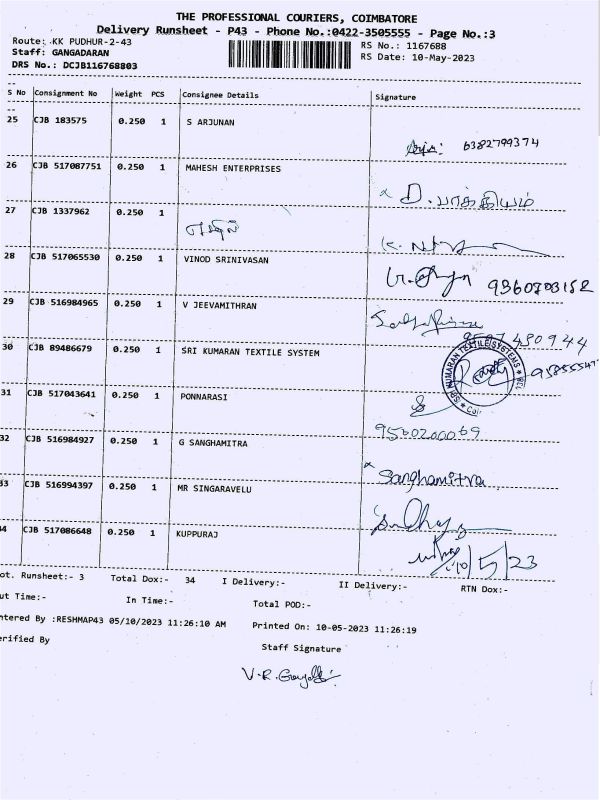 THE PROFESSIONAL COURIERS, COIMBATORE
Delivery Runsheet - P43 - Phone No.:0422-3505555 - Page No.:3
Route: KK PUDHUR-2-43 RS No.: 1167688
Staff: GANGADARAN RS Date: 10-May-2023
DRS No.: DCJB116768803
S No Consignment No Weight PCS Consignee Details Signature
25 CJB 183575 0.250 1 S ARJUNAN
6382799374
26 CJB 517087751 0.250 1 MAHESH ENTERPRISES
27 CJB 1337962 0.250 1
28 CJB 517065530 0.250 1 VINOD SRINIVASAN
9360803152
29 CJB 516984965 0.250 1 V JEEVAMITHRAN
30 CJB 89486679 0.250 1 SRI KUMARAN TEXTILE SYSTEM
SRI KUMARAN TEXTILE SYSTEMS
31 CJB 517043641 0.250 1 PONNARASI
32 CJB 516984927 0.250 1 G SANGHAMITRA
Sanghamitra
33 CJB 516994397 0.250 1 MR SINGARAVELU
34 CJB 517086648 0.250 1 KUPPURAJ
10/5/23
ot. Runsheet:- 3 Total Dox:- 34 I Delivery:- II Delivery:- RTN Dox:-
ut Time:- In Time:- Total POD:-
ntered By :RESHMAP43 05/10/2023 11:26:10 AM Printed On: 10-05-2023 11:26:19
erified By Staff Signature